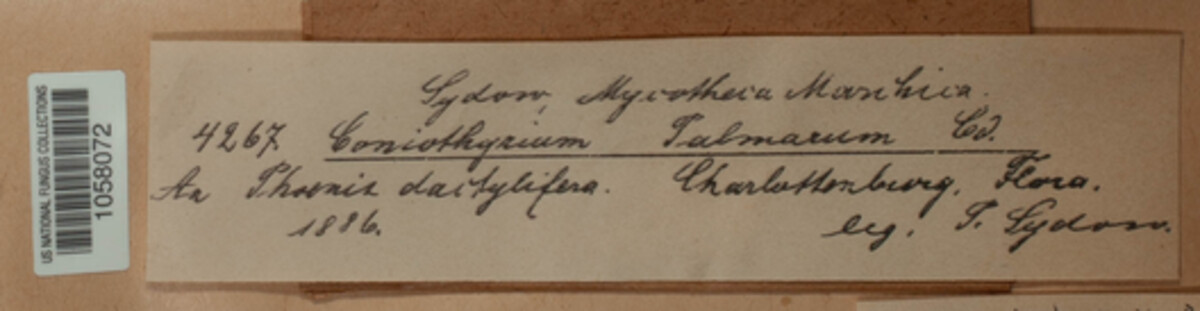 Sydow, Mycotheca Marchica.
4267 Coniothyrium Palmarum Cd.
An Phoenix dactylifera. Charlottenburg, Flora.
1886. leg. P. Sydow.
US NATIONAL FUNGUS COLLECTIONS
1058072